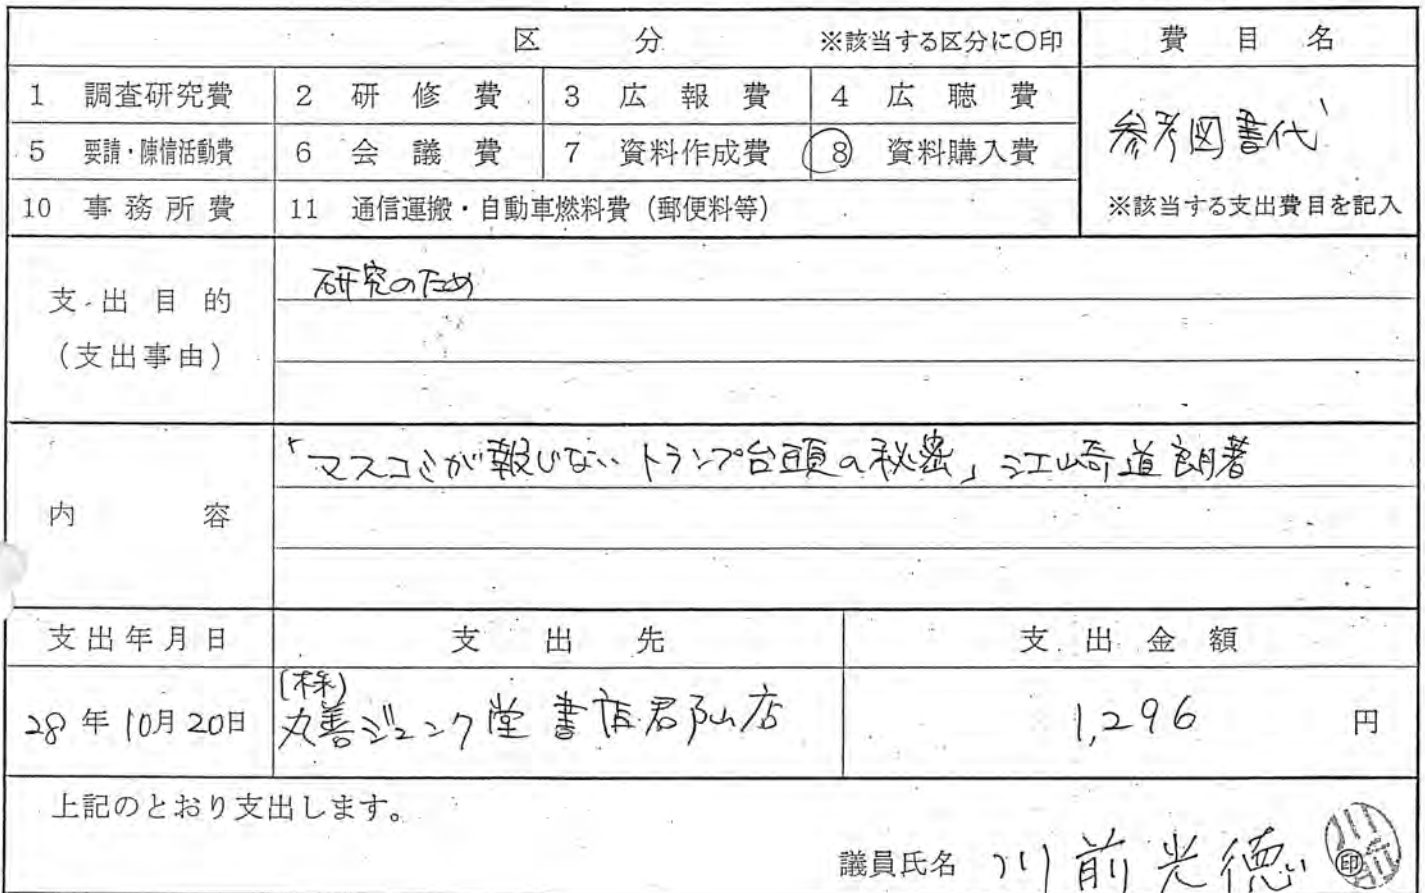 区 分 ※該当する区分に○印 費 目 名
1 調査研究費 2 研 修 費 3 広 報 費 4 広 聴 費
参考図書代
5 要請・陳情活動費 6 会 議 費 7 資料作成費 8 資料購入費
10 事務所費 11 通信運搬・自動車燃料費（郵便料等）
※該当する支出費目を記入
支出目的
（支出事由）
研究のため
内 容
「マスコミが報じない トランプ台頭の秘密」江崎道朗著
支出年月日 支 出 先 支 出 金 額
28年10月20日
(株)
丸善ジュンク堂書店郡山店
1,296 円
上記のとおり支出します。
議員氏名 川前光徳 印
川前